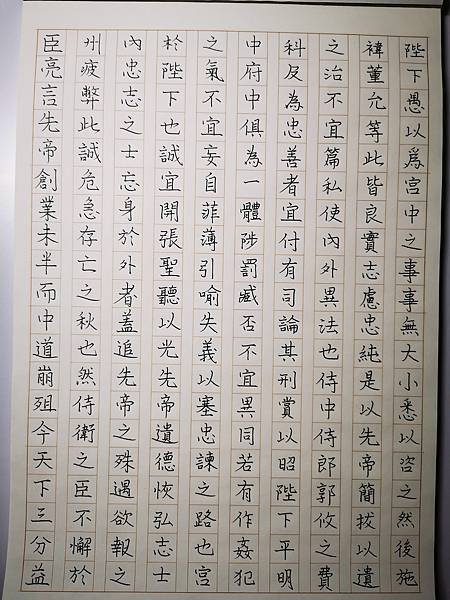 臣亮言先帝創業未半而中道崩殂今天下三分益
州疲弊此誠危急存亡之秋也然侍衛之臣不懈於
內忠志之士忘身於外者蓋追先帝之殊遇欲報之
於陛下也誠宜開張聖聽以光先帝遺德恢弘志士
之氣不宜妄自菲薄引喻失義以塞忠諫之路也宮
中府中俱為一體陟罰臧否不宜異同若有作姦犯
科及為忠善者宜付有司論其刑賞以昭陛下平明
之治不宜篇私使內外異法也侍中侍郎郭攸之費
禕董允等此皆良實志慮忠純是以先帝簡拔以遺
陛下愚以爲宮中之事事無大小悉以咨之然後施